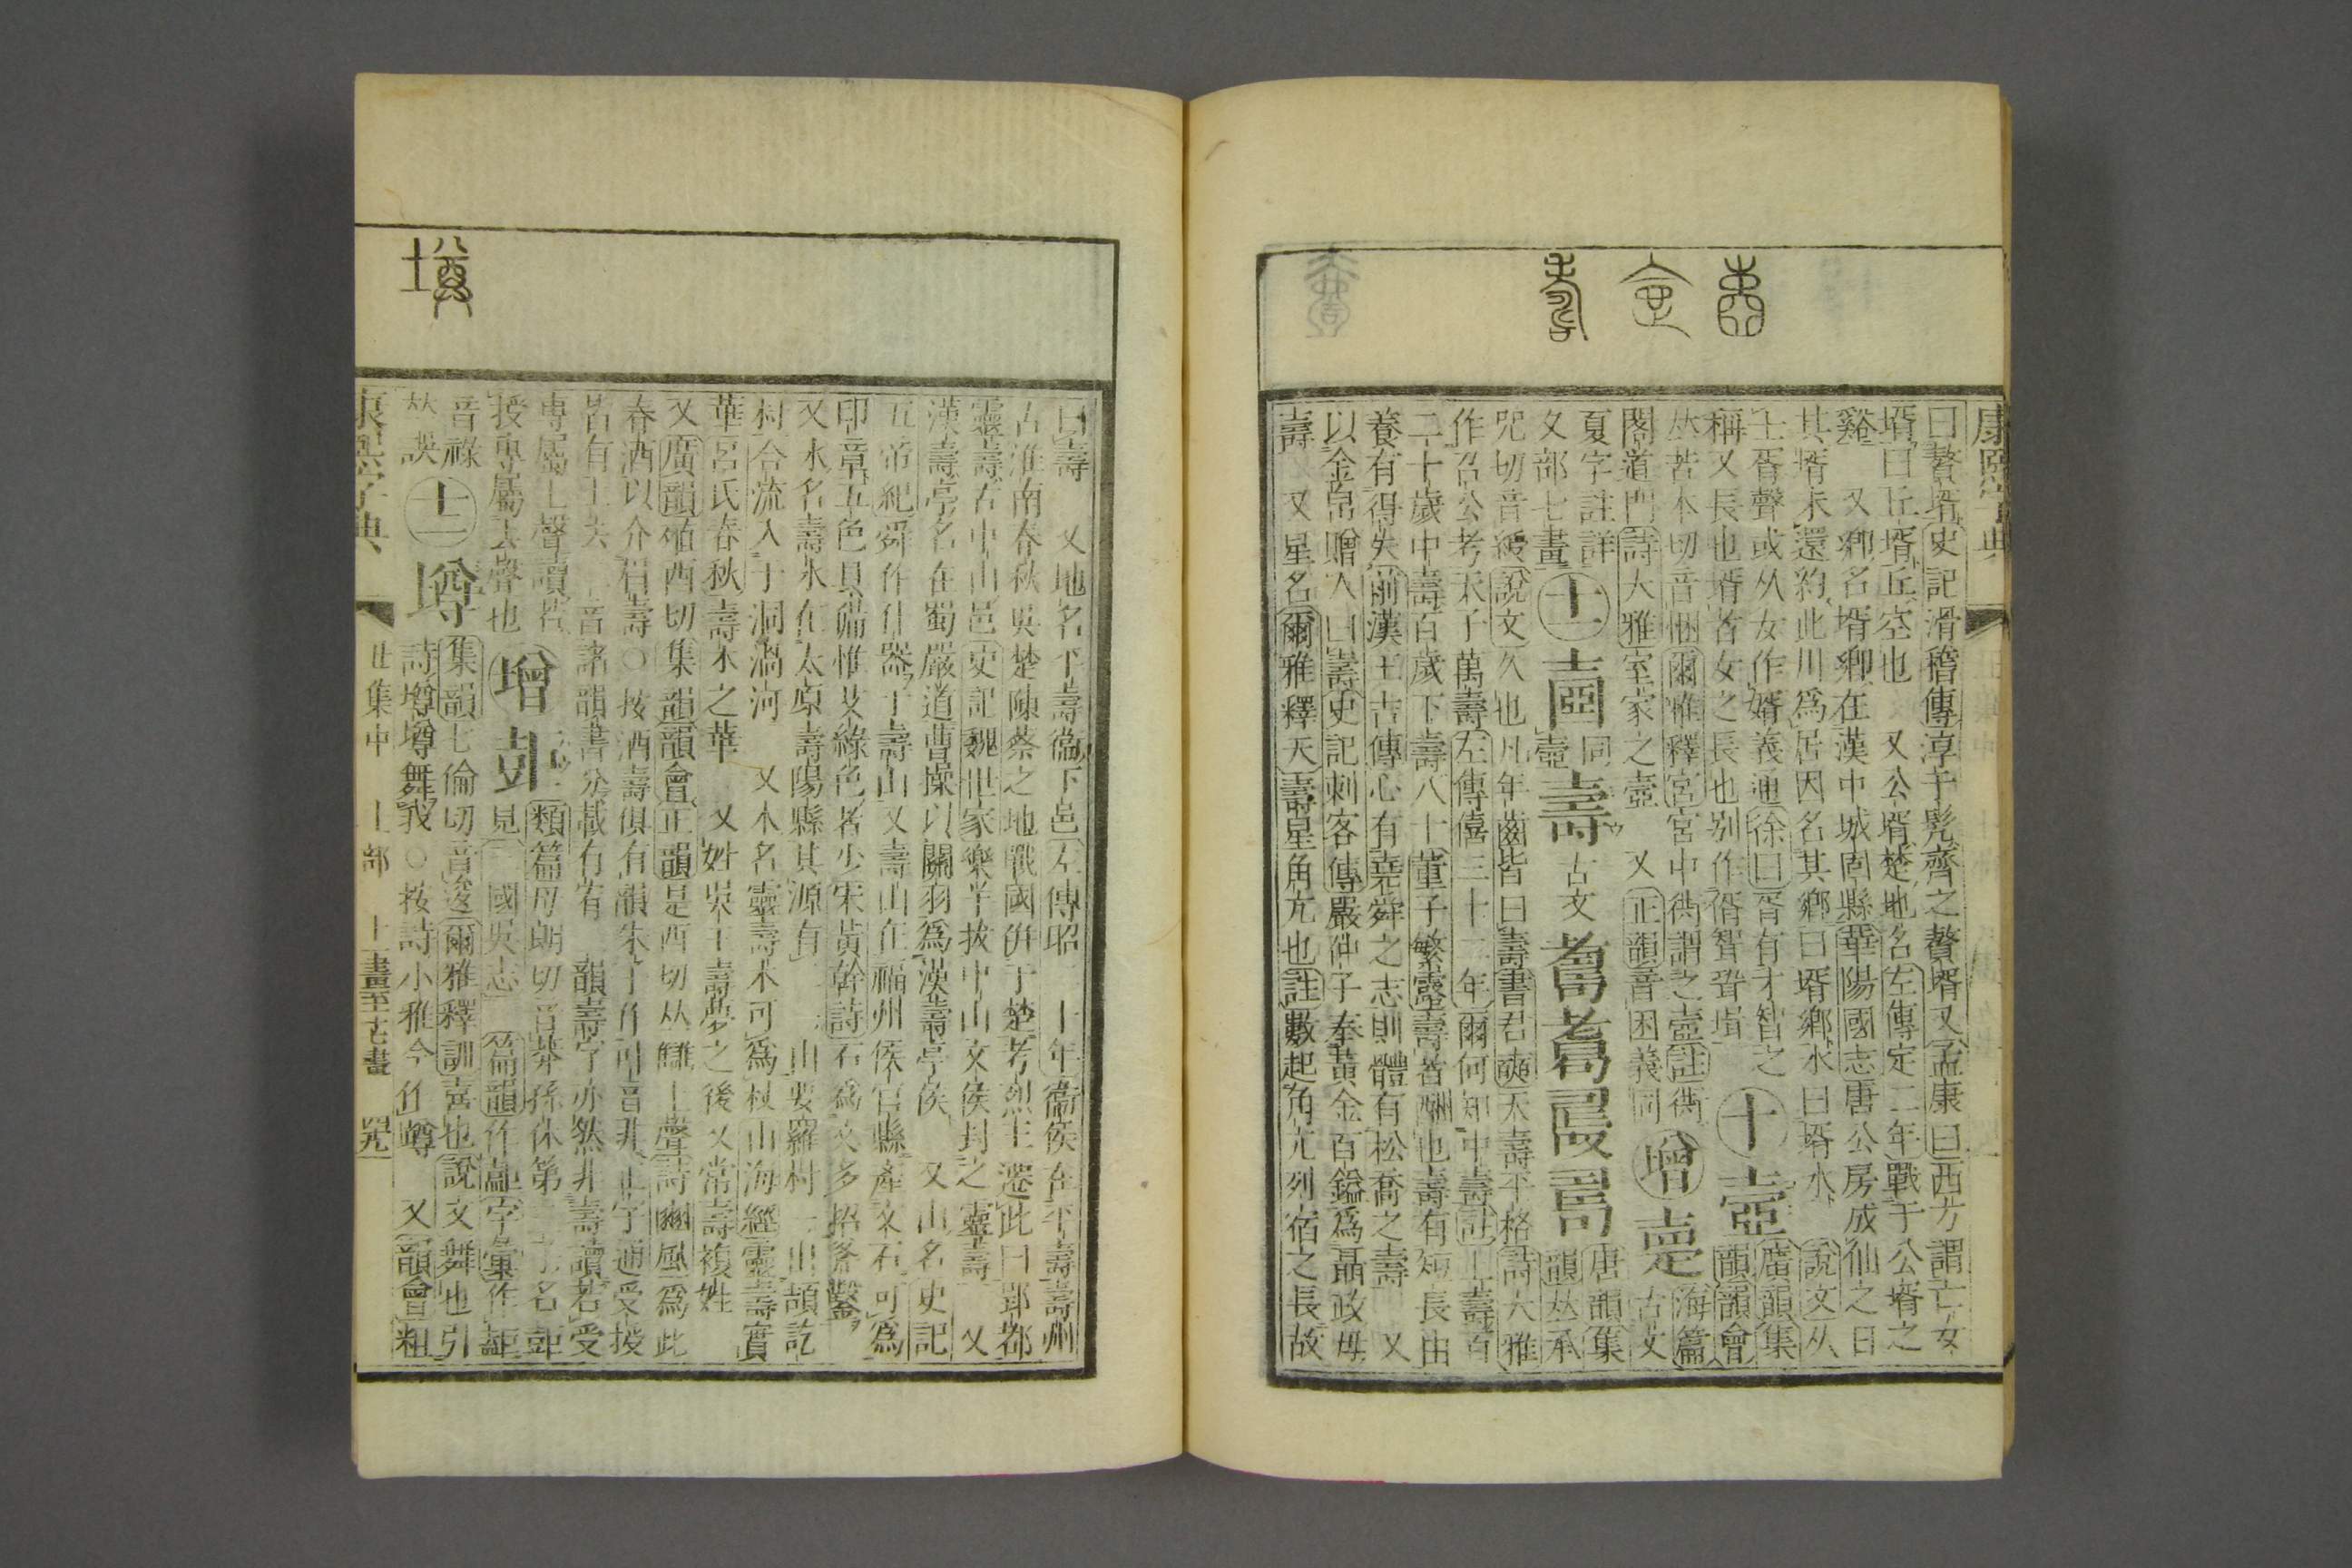 康熙字典
曰贅壻史記滑稽傳淳于髡齊之贅壻又孟康曰西方謂亡女
壻曰丘壻丘空也 又公壻楚地名左傳定二年戰于公壻之
谿 又鄉名壻鄉在漢中城固縣華陽國志唐公房成仙之日
其壻未還約此川爲居因名其鄉曰壻鄉水曰壻水 說文从
士胥聲或从女作婿義通徐曰胥有才智之
稱又長也壻者女之長也別作
十 壼 廣韻集
韻韻會
𠀤苦本切音悃爾雅釋宮宮中衖謂之壼註衖
閣道門詩大雅室家之壼 又正韻音困義同 增 海篇
古文
夏字註詳
夂部七畫
十一 壷 同
壺 壽 古文
唐韻集
韻𠀤承
咒切音綬說文久也凡年齒皆曰壽書君奭天壽平格詩大雅
作召公考天子萬壽左傳僖三十二年爾何知中壽註上壽百
二十歲中壽百歲下壽八十董子繁露壽者酬也壽有短長由
養有得失前漢王吉傳心有堯舜之志則體有松喬之壽 又
以金帛贈人曰壽史記刺客傳嚴仲子奉黃金百鎰爲聶政母
壽 又星名爾雅釋天壽星角亢也註數起角亢列宿之長故
曰壽 又地名平壽衞下邑左傳昭 十年衞侯在平壽壽州
古淮南春秋吳楚陳蔡之地戰國併于楚考烈王遷此曰郢都
靈壽古中山邑史記魏世家樂羊拔中山文侯封之靈壽 又
漢壽亭名在蜀嚴道曹操以關羽爲漢壽亭侯 又山名史記
五帝紀舜作什器于壽山又壽山在福州侯官縣產文石可爲
印章五色具備惟艾綠色者少宋黃幹詩石爲文多招斧鑿
又水名壽水在太原壽陽縣其源有二 山要羅村一出頡訖
村合流入于洞渦河 又木名靈壽木可爲杖山海經靈壽實
華呂氏春秋壽木之華 又姓吳王壽夢之後又常壽複姓
又廣韻殖酉切集韻韻會正韻是酉切𠀤讎上聲詩豳風爲此
春酒以介眉壽○按酒壽俱有韻朱子作叶音非正字通受授
皆有上去二音諸韻書分載有宥 韻壽字亦然非壽讀若受
專屬上聲讀若
授專屬去聲也
增 類篇母朗切音莽孫休第三子名
見 國吳志 篇韻作 字彙作
音祿
𠀤誤
十二 壿 集韻七倫切音逡爾雅釋訓喜也說文舞也引
詩壿壿舞我○按詩小雅今作蹲 又韻會粗
康熙字典 丑集中 士部 十畫至十七畫 四九